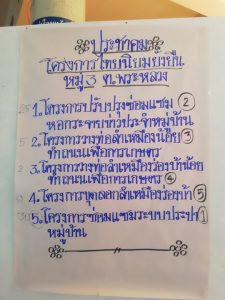 ประชาคม
โครงการไทยนิยมยั่งยืน
หมู่ 3 ต.พระหลวง
25 1.โครงการปรับปรุงซ่อมแซม ②
หอกระจายข่าวประจำหมู่บ้าน
5 2.โครงการวางท่อลำเหมืองน้อย ③
ทำถนนเพื่อการเกษตร
2 3.โครงการวางท่อลำเหมืองร่องบ้าน้อย
ทำถนนเพื่อการเกษตร ④
4.โครงการขุดลอกลำเหมืองร่องบ้า ⑤
30 5.โครงการซ่อมแซมระบบประปา ①
หมู่บ้าน